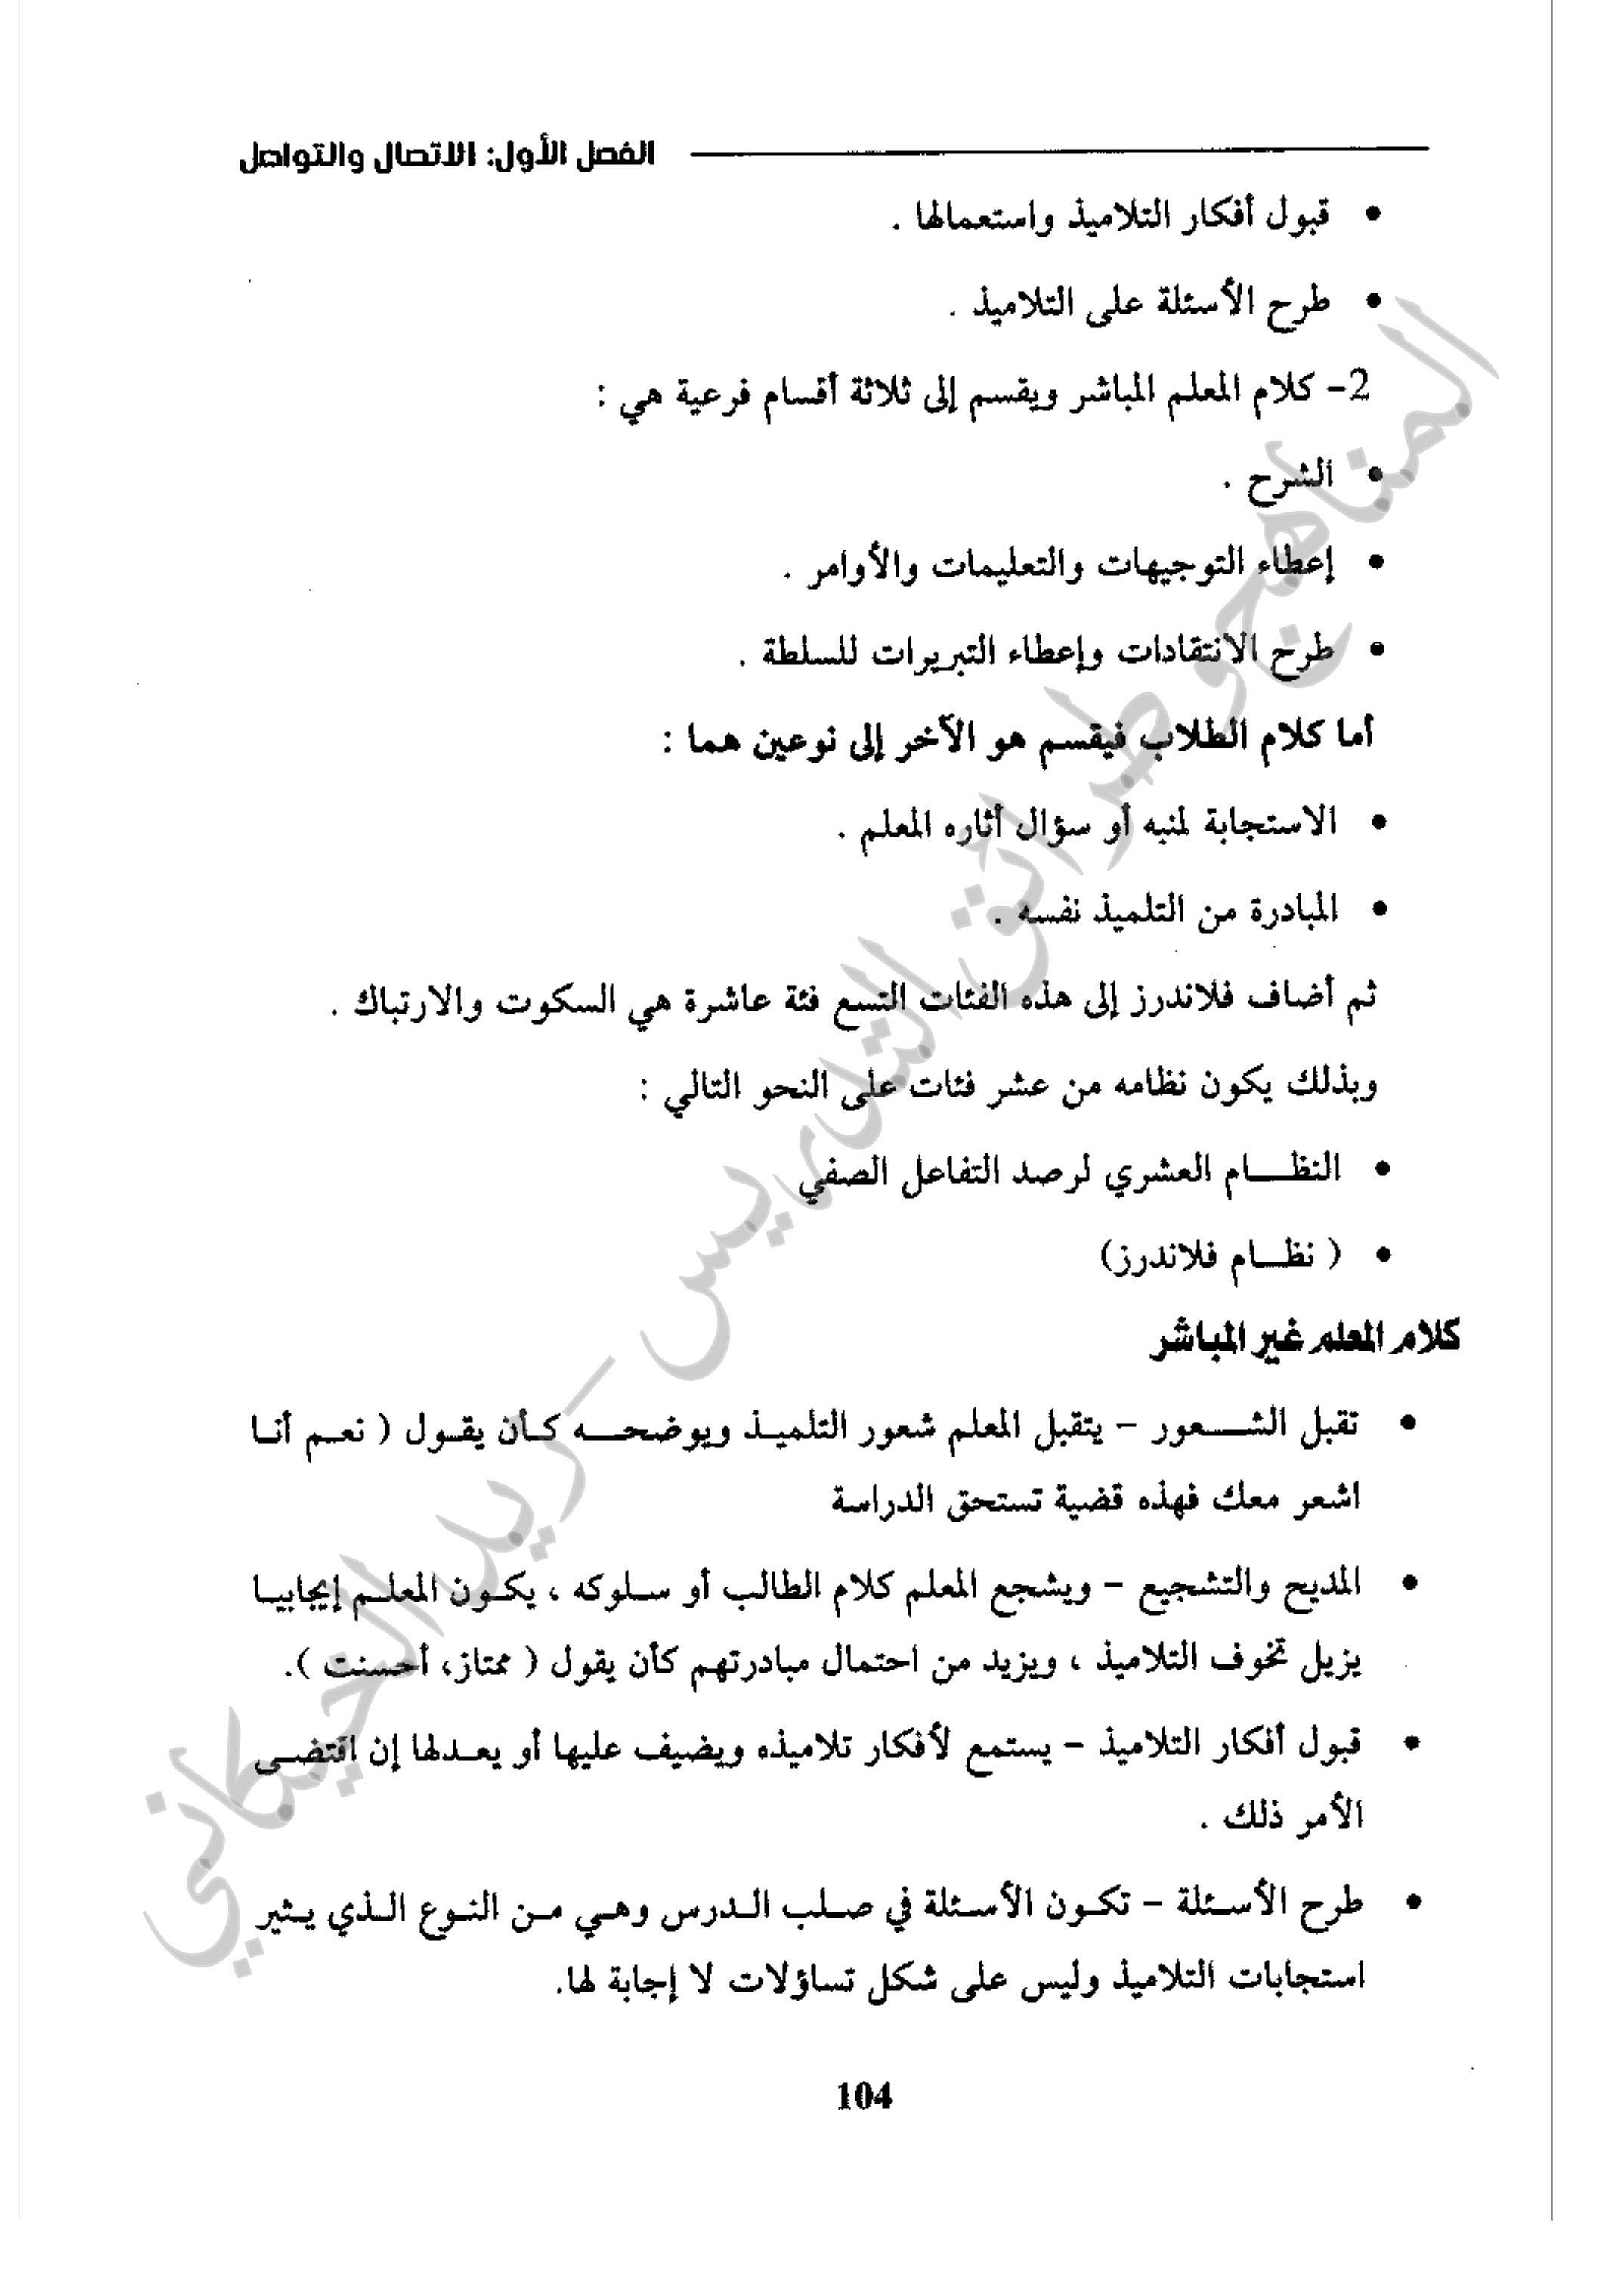 الفصل الأول: الاتصال والتواصل
• قبول أفكار التلاميذ واستعمالها .
• طرح الأسئلة على التلاميذ .
2- كلام المعلم المباشر ويقسم إلى ثلاثة أقسام فرعية هي :
• الشرح .
• إعطاء التوجيهات والتعليمات والأوامر .
• طرح الانتقادات وإعطاء التبريرات للسلطة .
أما كلام الطلاب فيقسم هو الآخر إلى نوعين هما :
• الاستجابة لمنبه أو سؤال أثاره المعلم .
• المبادرة من التلميذ نفسه .
ثم أضاف فلاندرز إلى هذه الفئات التسع فئة عاشرة هي السكوت والارتباك .
وبذلك يكون نظامه من عشر فئات على النحو التالي :
• النظـــام العشري لرصد التفاعل الصفي
• ( نظـــام فلاندرز)
كلام المعلم غير المباشر
• تقبل الشـــعور – يتقبل المعلم شعور التلميـذ ويوضحـــه كـأن يقـول ( نعـم أنـا
اشعر معك فهذه قضية تستحق الدراسة
• المديح والتشجيع – ويشجع المعلم كلام الطالب أو سـلوكه ، يكـون المعلـم إيجابيـا
يزيل تخوف التلاميذ ، ويزيد من احتمال مبادرتهم كأن يقول ( ممتاز، أحسنت ).
• قبول أفكار التلاميذ – يستمع لأفكار تلاميذه ويضيف عليها أو يعـدلها إن اقتضـى
الأمر ذلك .
• طرح الأسـئلة – تكـون الأسـئلة في صـلب الـدرس وهـي مـن النـوع الـذي يـثير
استجابات التلاميذ وليس على شكل تساؤلات لا إجابة لها.
104
المناهج وطرائق التدريس – ريد الحيكاني